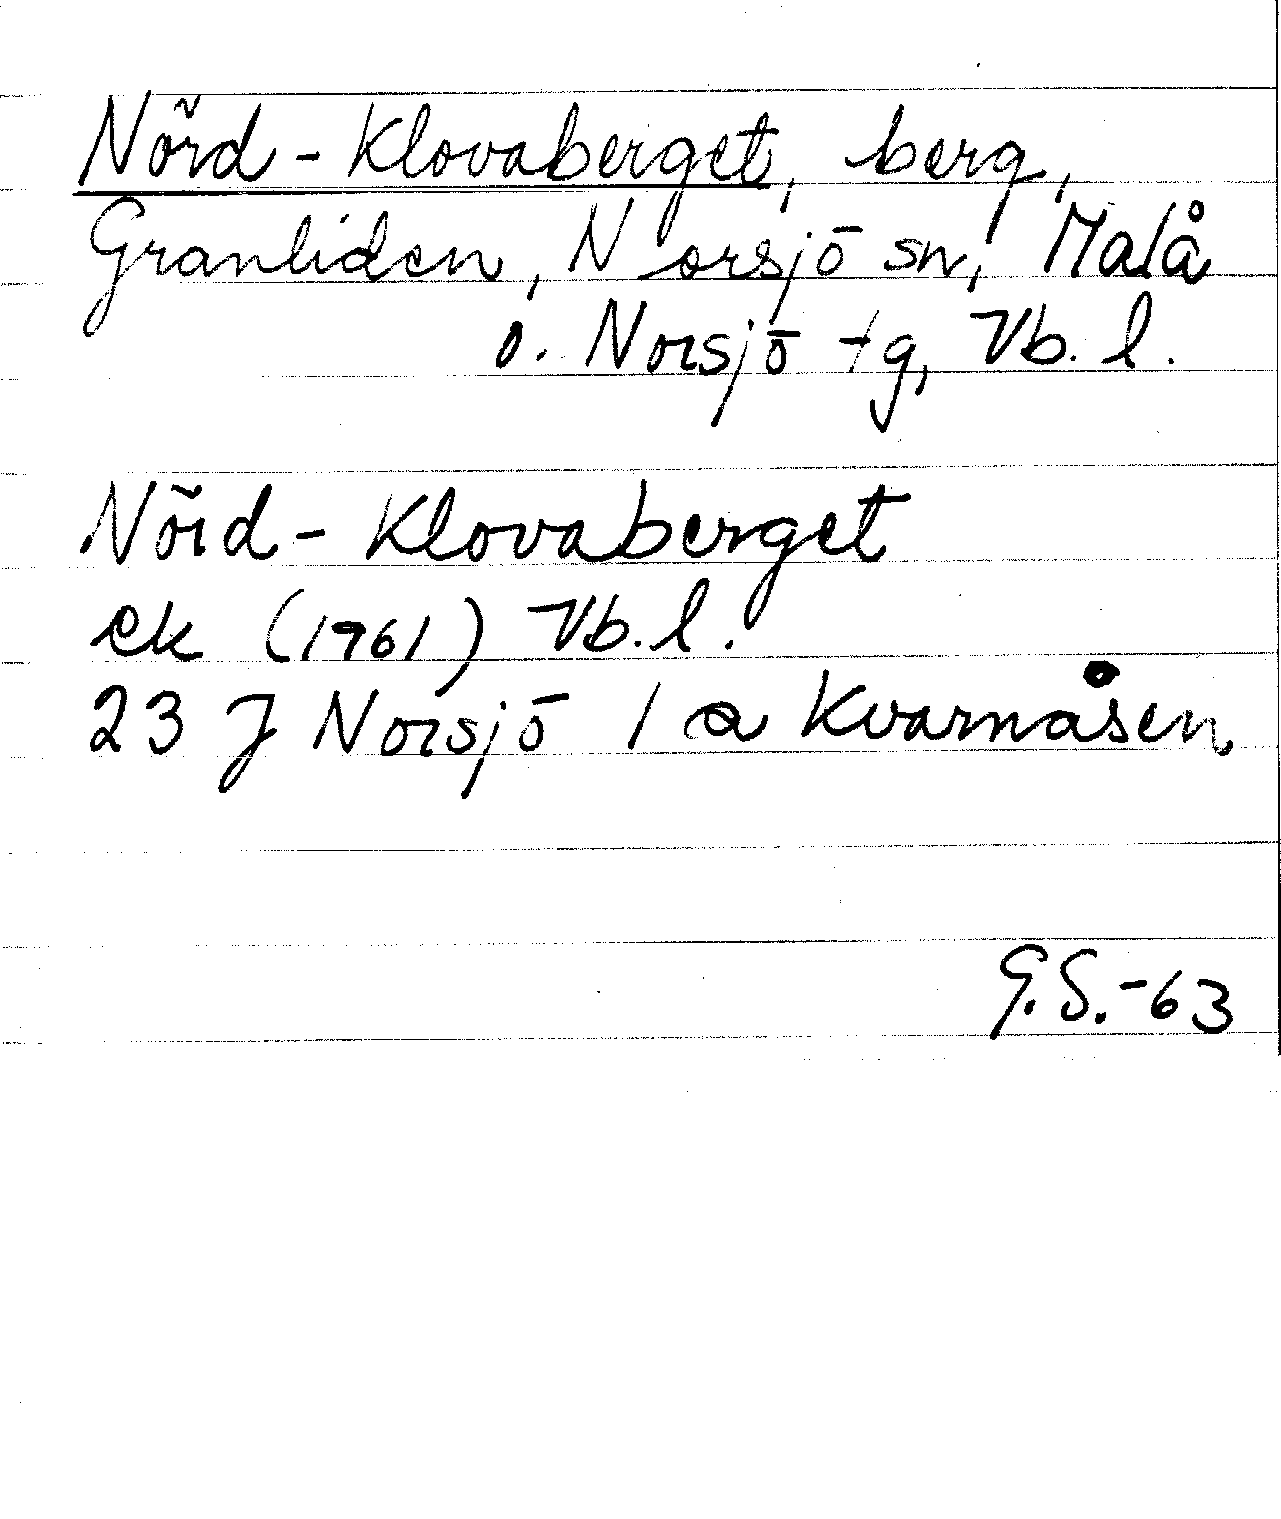 Nörd-Klovaberget, berg,
Granliden, Norsjö sn, Malå
o. Norsjö tg, Vb. l.
Nörd-Klovaberget
ek (1961) Vb. l.
23 J Norsjö 1 a Kvarnåsen
G.S.-63